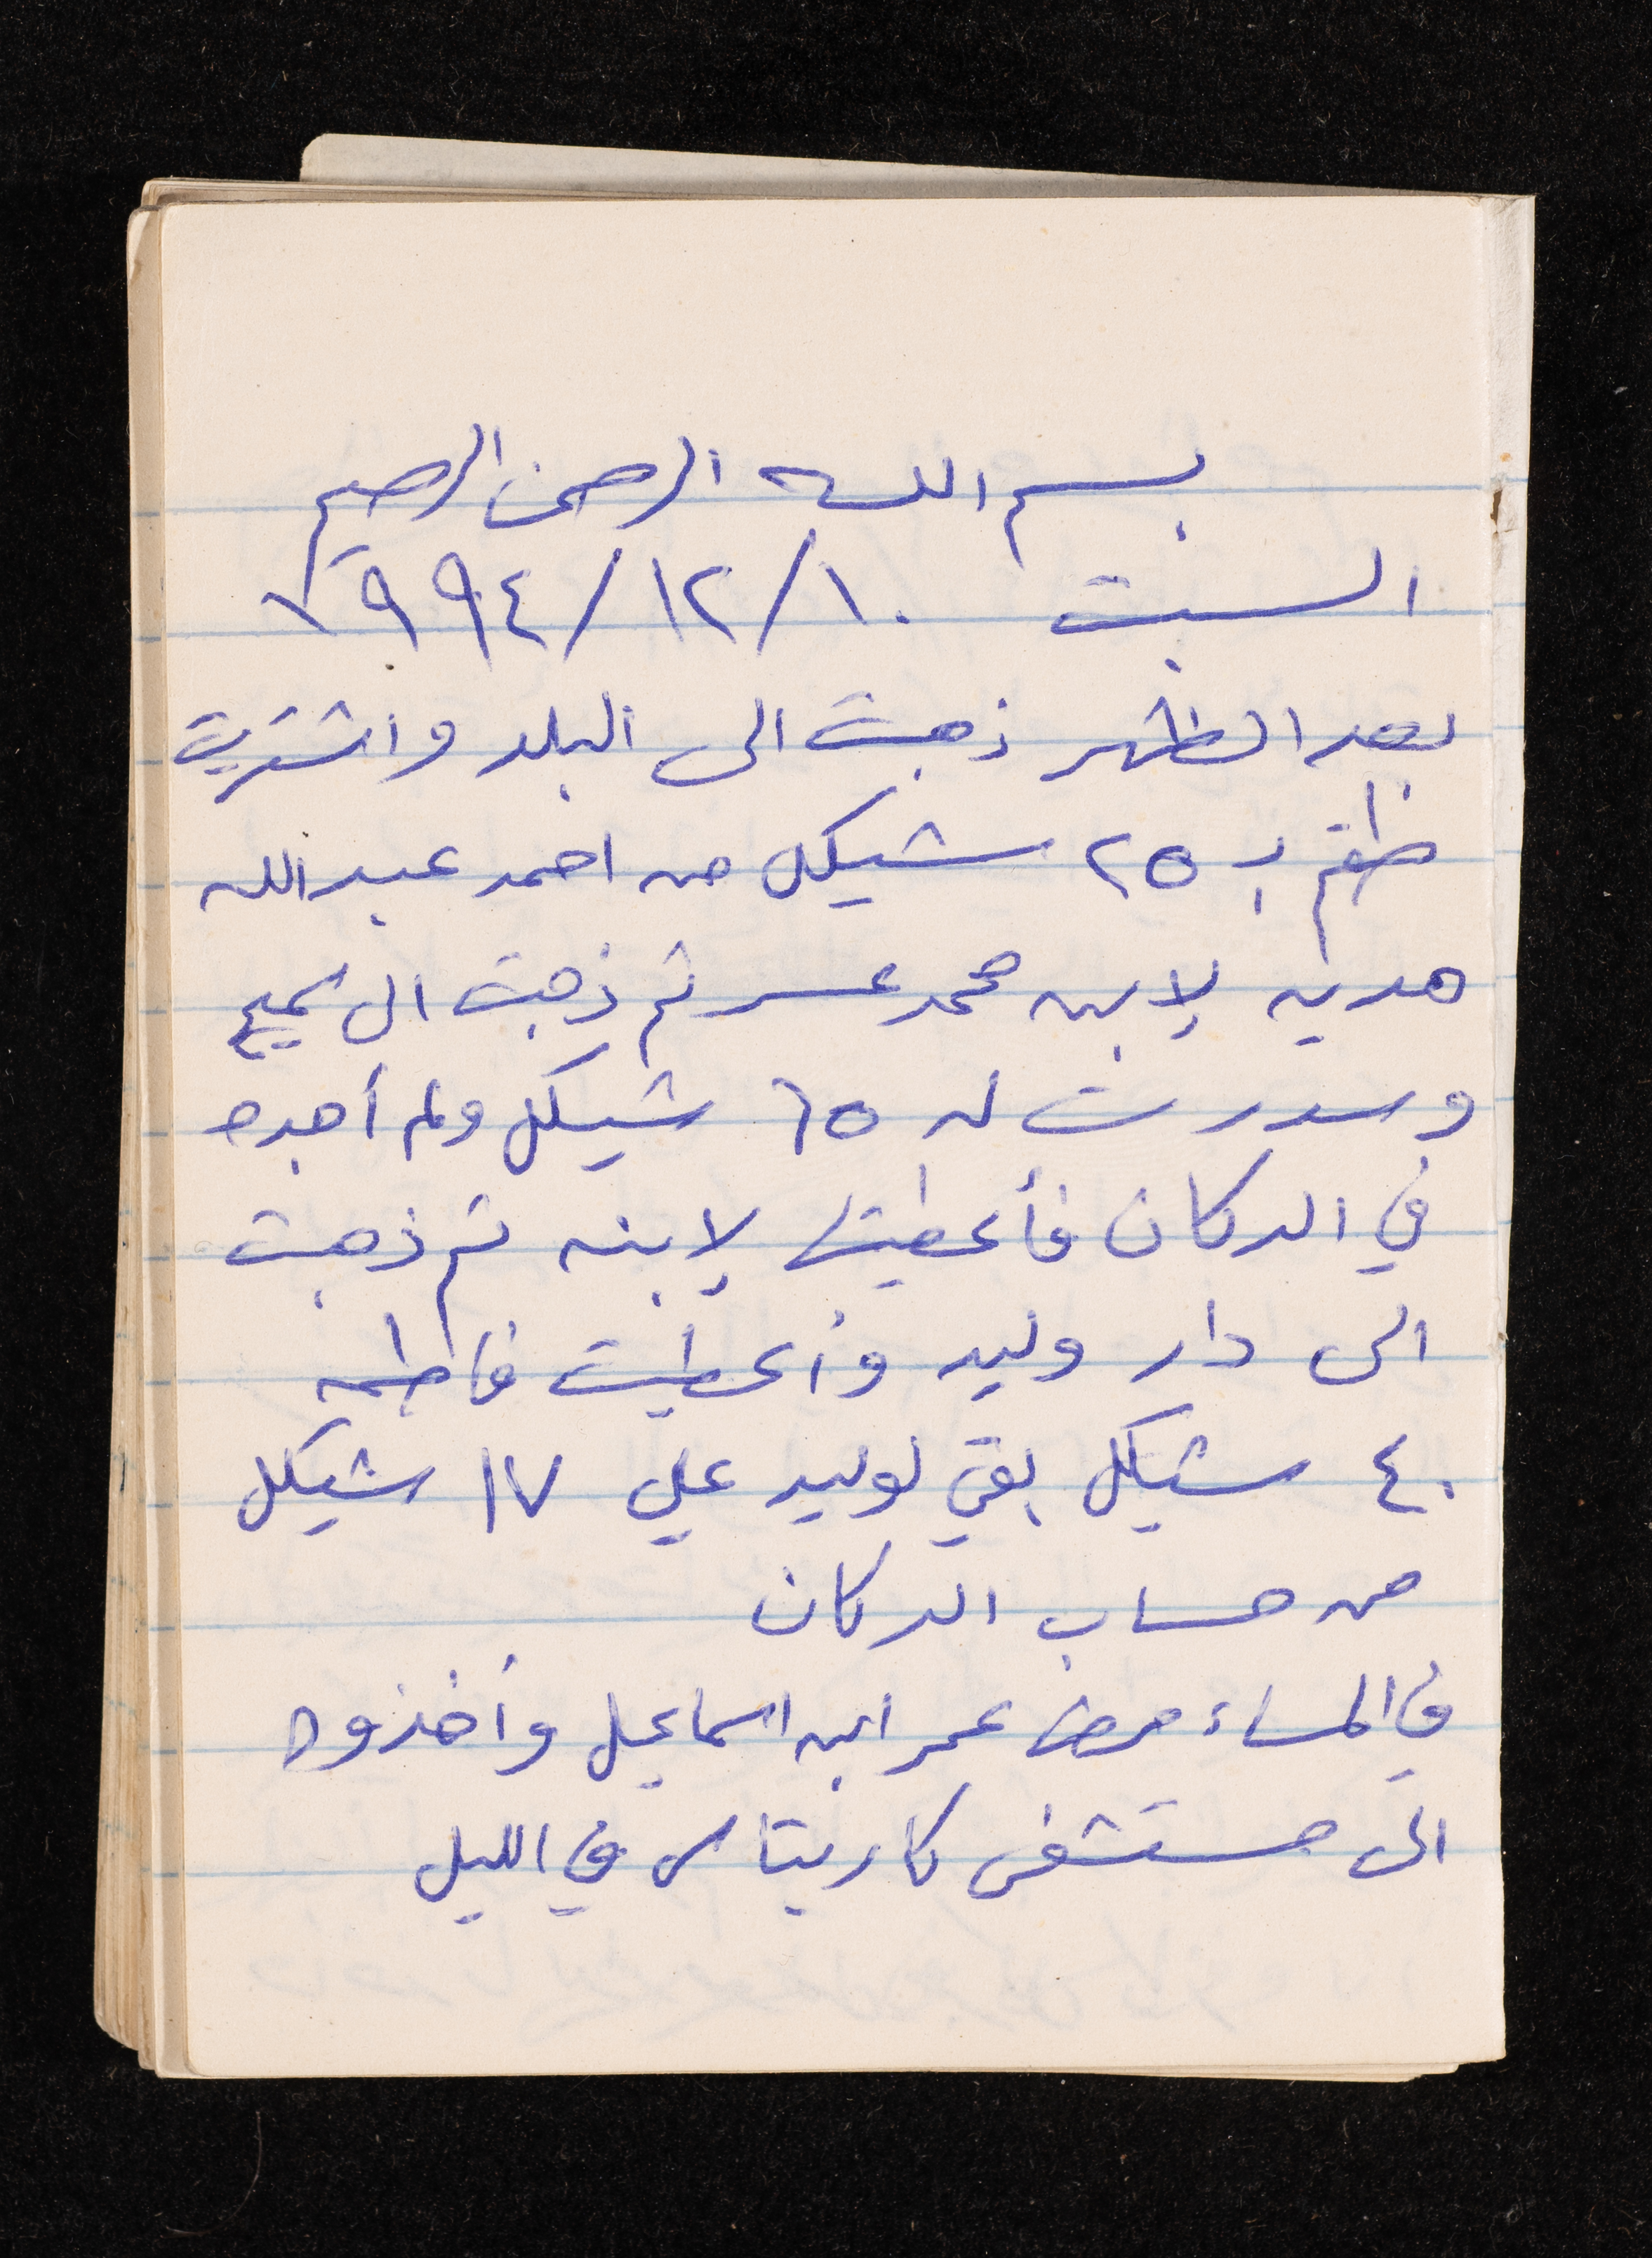 بسم الله الرحمن الرحيم
السبت ١٠/١٢/١٩٩٤
بعد الظهر ذهبت الى البلد واشتريت
طقم بـ ٢٥ شيكل من احمد عبدالله
هديه لابن محمد عسر ثم ذهبت الى سميح
وسددت له ٦٥ شيكل ولم أجده
في الدكان فأعطيتها لابنه ثم ذهبت
الى دار وليد وأعطيت فاطمه
٤٠ شيكل بقي لوليد علي ١٧ شيكل
من حساب الدكان
في المساء مرض عمر ابن اسماعيل وأخذوه
الى مستشفى كاريتاس في الليل